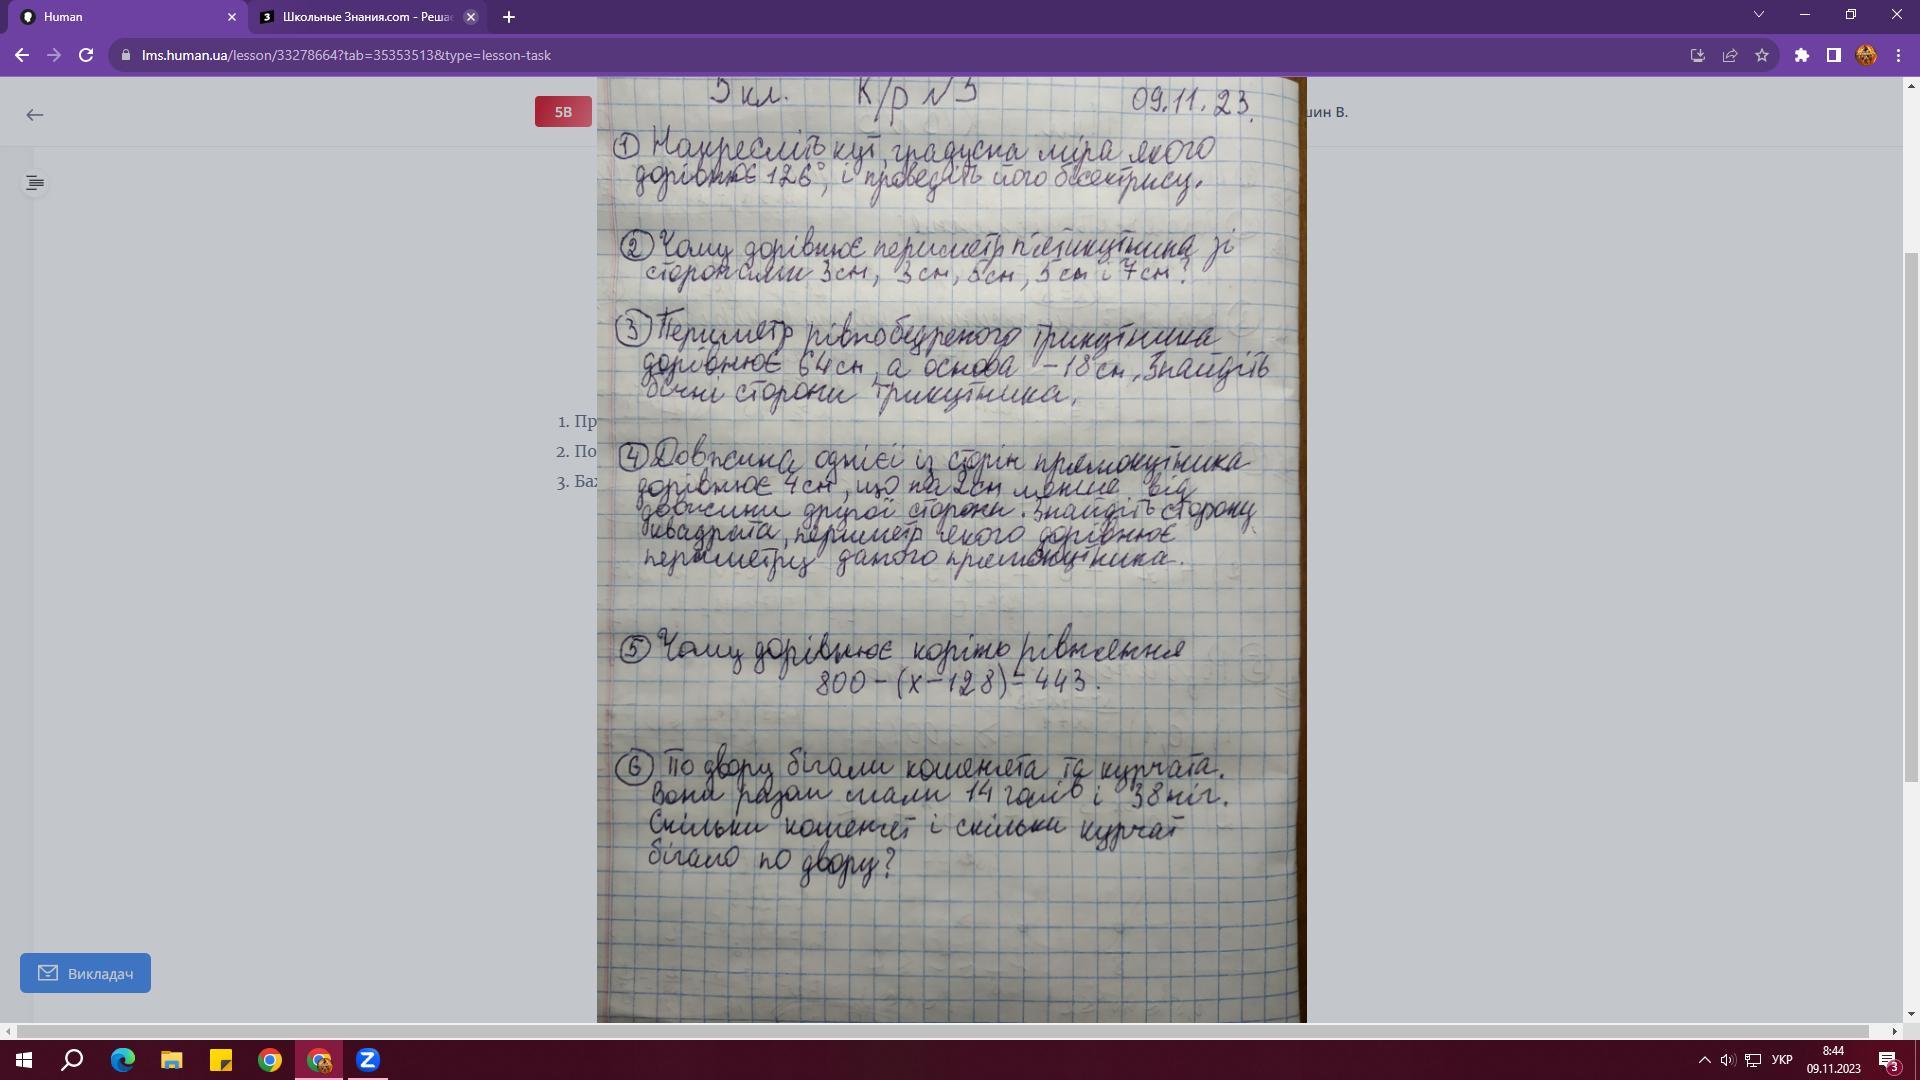 Human
Школьные Знания.com - Реша
lms.human.ua/lesson/33278664?tab=35353513&type=lesson-task
5В
шин В.
5 кл. К/р №3 09.11.23.
① Накресліть кут, градусна міра якого
дорівнює 126°, і проведіть його бісектрису.
② Чому дорівнює периметр п'ятикутника зі
сторонами 3см, 3см, 5см, 5см і 7см?
③ Периметр рівнобедреного трикутника
дорівнює 64см, а основа – 18см. Знайдіть
бічні сторони трикутника.
④ Довжина однієї із сторін прямокутника
дорівнює 4см, що на 2см менше від
довжини другої сторони. Знайдіть сторону
квадрата, периметр якого дорівнює
периметру даного прямокутника.
⑤ Чому дорівнює корінь рівняння
800 – (x – 128) = 443.
⑥ По двору бігали кошенята та курчата.
Вони разом мали 14 голів і 38 ніг.
Скільки кошенят і скільки курчат
бігало по двору?
1. Пр
2. По
3. Баж
Викладач
УКР
8:44
09.11.2023
3